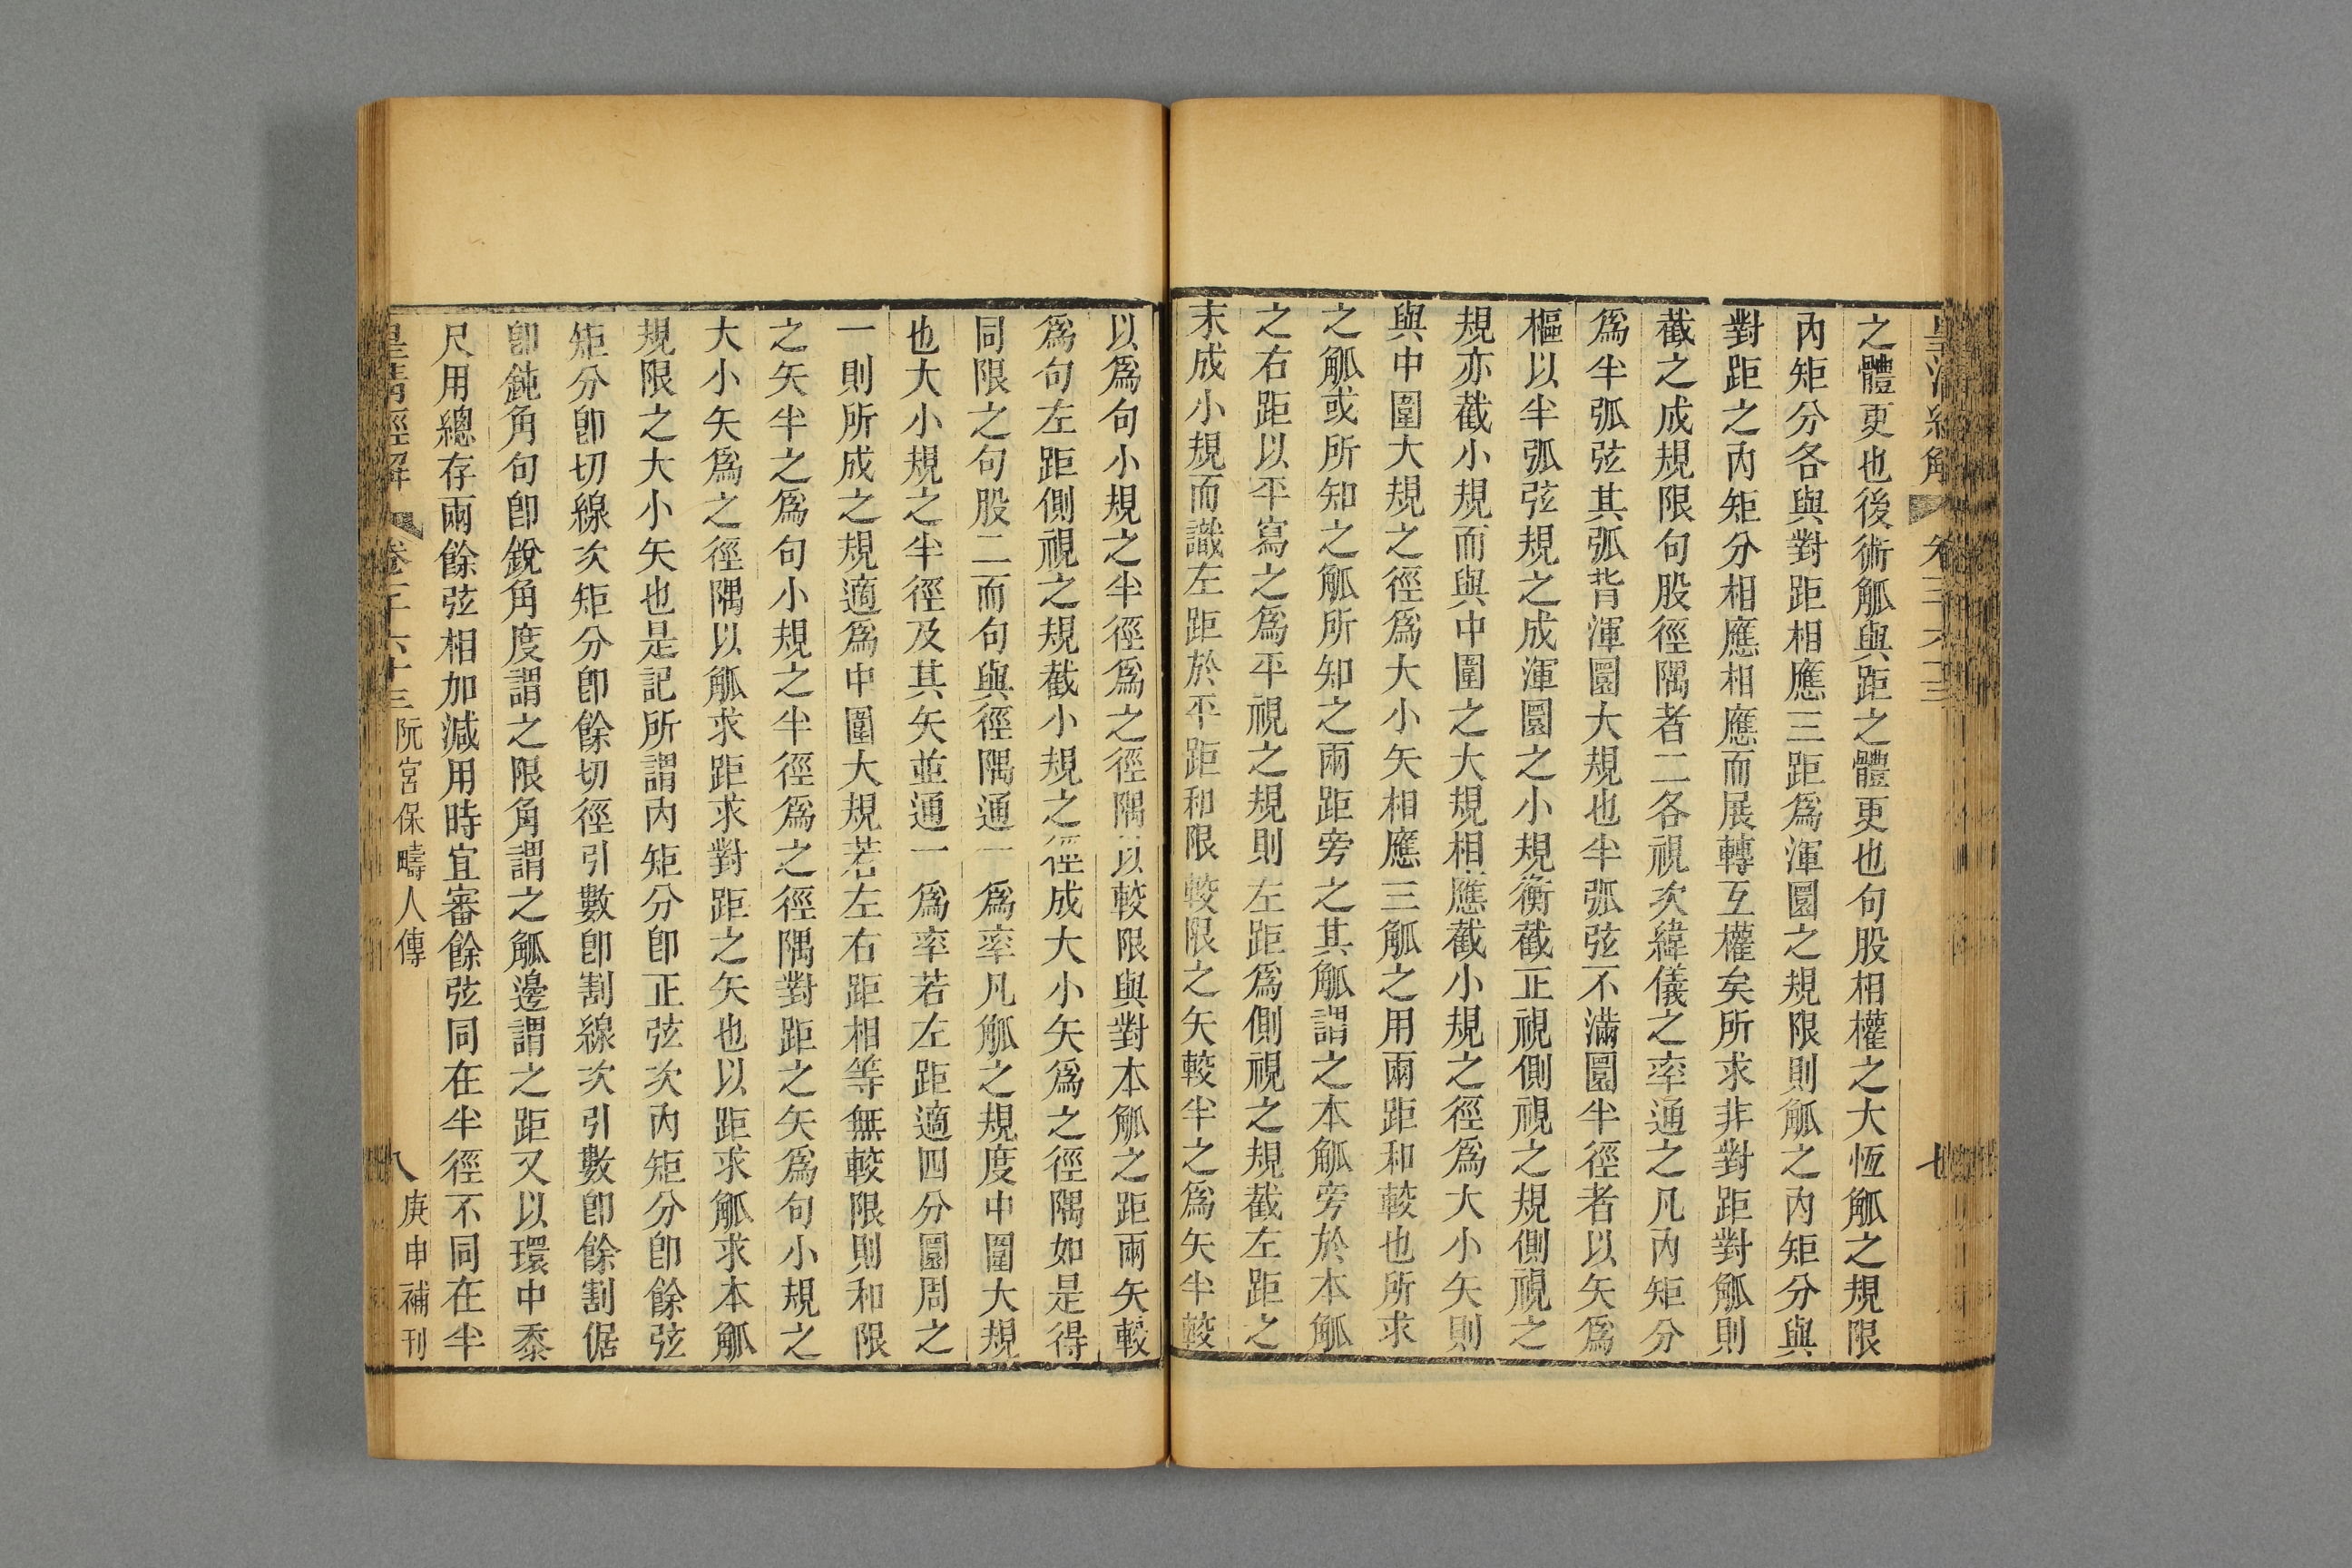 皇清經解 卷
之體更也後術觚與距之體更也句股相權之大恆觚之規限
內矩分各與對距相應三距爲渾圜之規限則觚之內矩分與
對距之內矩分相應相應而展轉互權矣所求非對距對觚則
截之成規限句股徑隅者二各視次緯儀之率通之凡內矩分
爲半弧弦其弧背渾圜大規也半弧弦不滿圜半徑者以矢爲
樞以半弧弦規之成渾圜之小規衡截正視側視之規側視之
規亦截小規而與中圍之大規相應截小規之徑爲大小矢則
與中圍大規之徑爲大小矢相應三觚之用兩距和較也所求
之觚或所知之觚所知之兩距旁之其觚謂之本觚旁於本觚
之右距以平寫之爲平視之規則左距爲側視之規截左距之
末成小規而識左距於平距和限較限之矢較半之爲矢半較
以爲句小規之半徑爲之徑隅以較限與對本觚之距兩矢較
爲句左距側視之規截小規之徑成大小矢爲之徑隅如是得
同限之句股二而句與徑隅通一爲率凡觚之規度中圍大規
也大小規之半徑及其矢並通一爲率若左距適四分圜周之
一則所成之規適爲中圍大規若左右距相等無較限則和限
之矢半之爲句小規之半徑爲之徑隅對距之矢爲句小規之
大小矢爲之徑隅以觚求距求對距之矢也以距求觚求本觚
規限之大小矢也是記所謂內矩分卽正弦次內矩分卽餘弦
矩分卽切線次矩分卽餘切徑引數卽割線次引數卽餘割倨
卽鈍角句卽銳角度謂之限角謂之觚邊謂之距又以環中黍
尺用總存兩餘弦相加減用時宜審餘弦同在半徑不同在半
皇清經解 卷千六十三 阮宮保疇人傳 八 庚申補刊